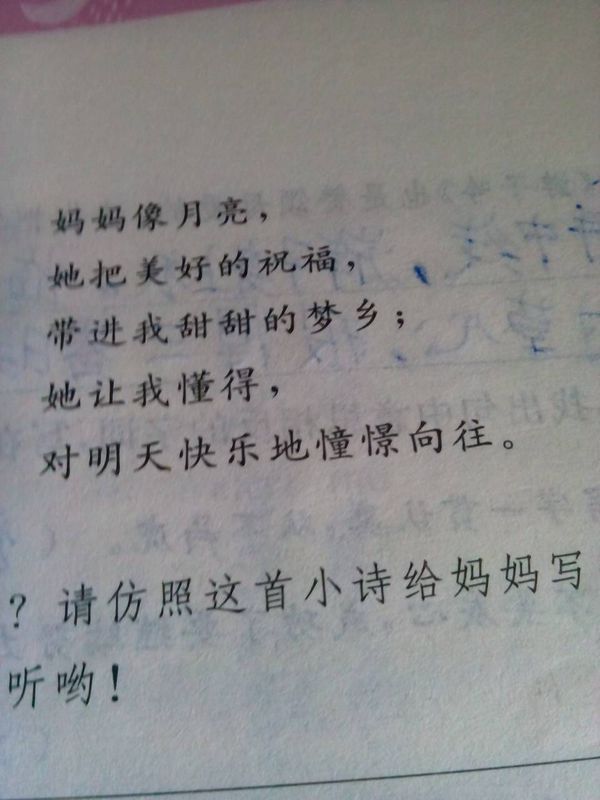 妈妈像月亮，
她把美好的祝福，
带进我甜甜的梦乡；
她让我懂得，
对明天快乐地憧憬向往。
？请仿照这首小诗给妈妈写
听哟！